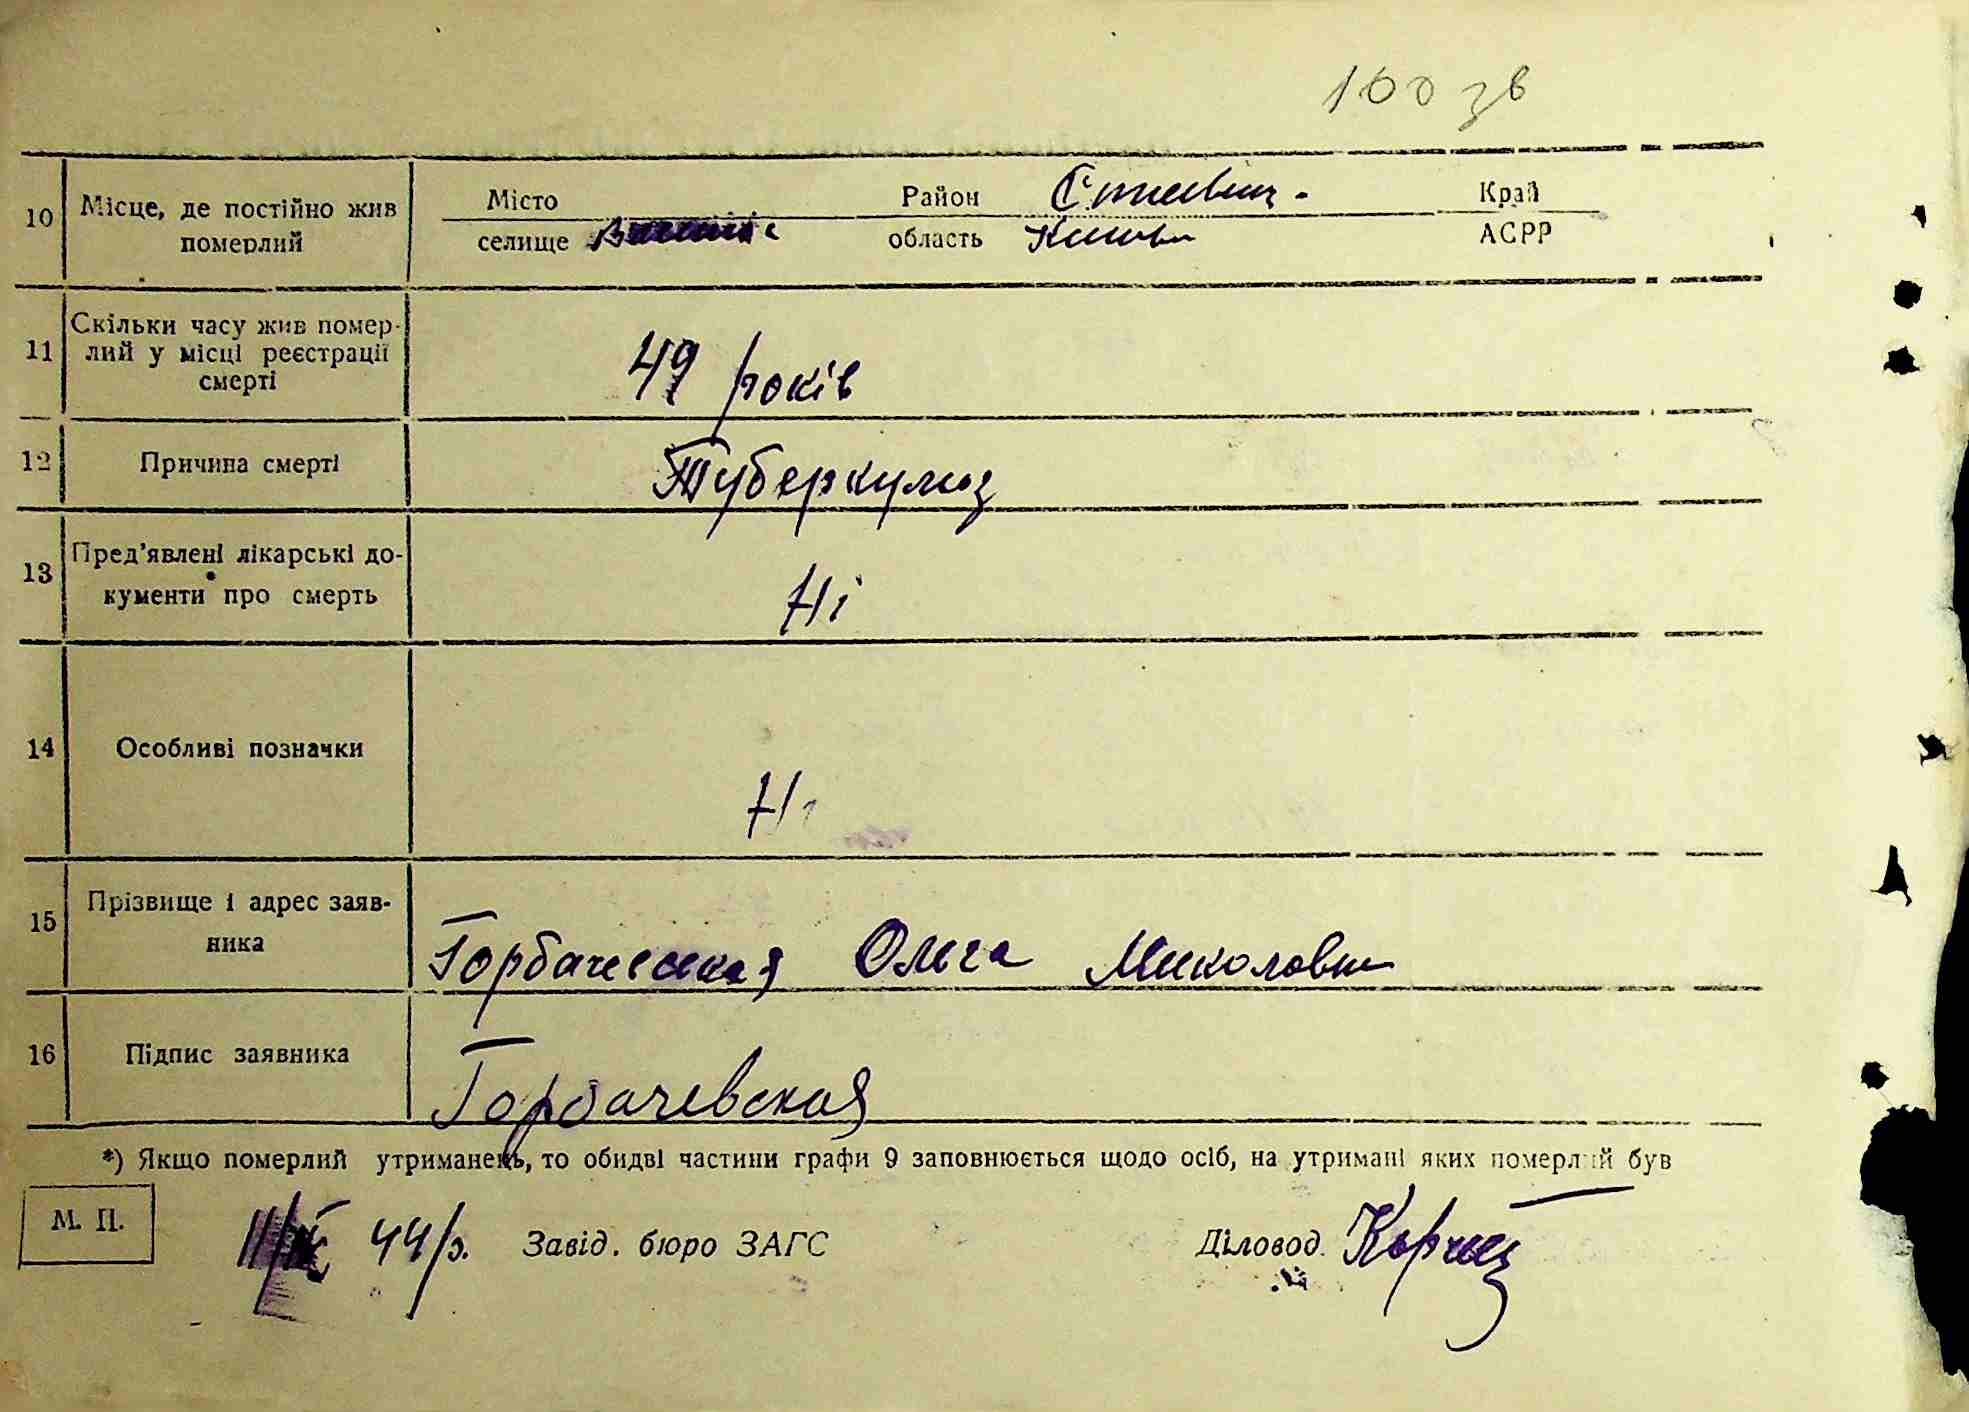 100 зв
10 Місце, де постійно жив померлий
Місто Район Край
селище область АСРР
11 Скільки часу жив помер-
лий у місці реєстрації
смерті
49 років
12 Причина смерті Туберкульоз
13 Пред'явлені лікарські до-
кументи про смерть
Ні
14 Особливі позначки
Ні
15 Прізвище і адрес заяв-
ника
Горбачевская Ольга Миколовна
16 Підпис заявника
Горбачевская
*) Якщо померлий утриманець, то обидві частини графи 9 заповнюється щодо осіб, на утримані яких померлий був
М. П. 44 р. Завід. бюро ЗАГС Діловод.